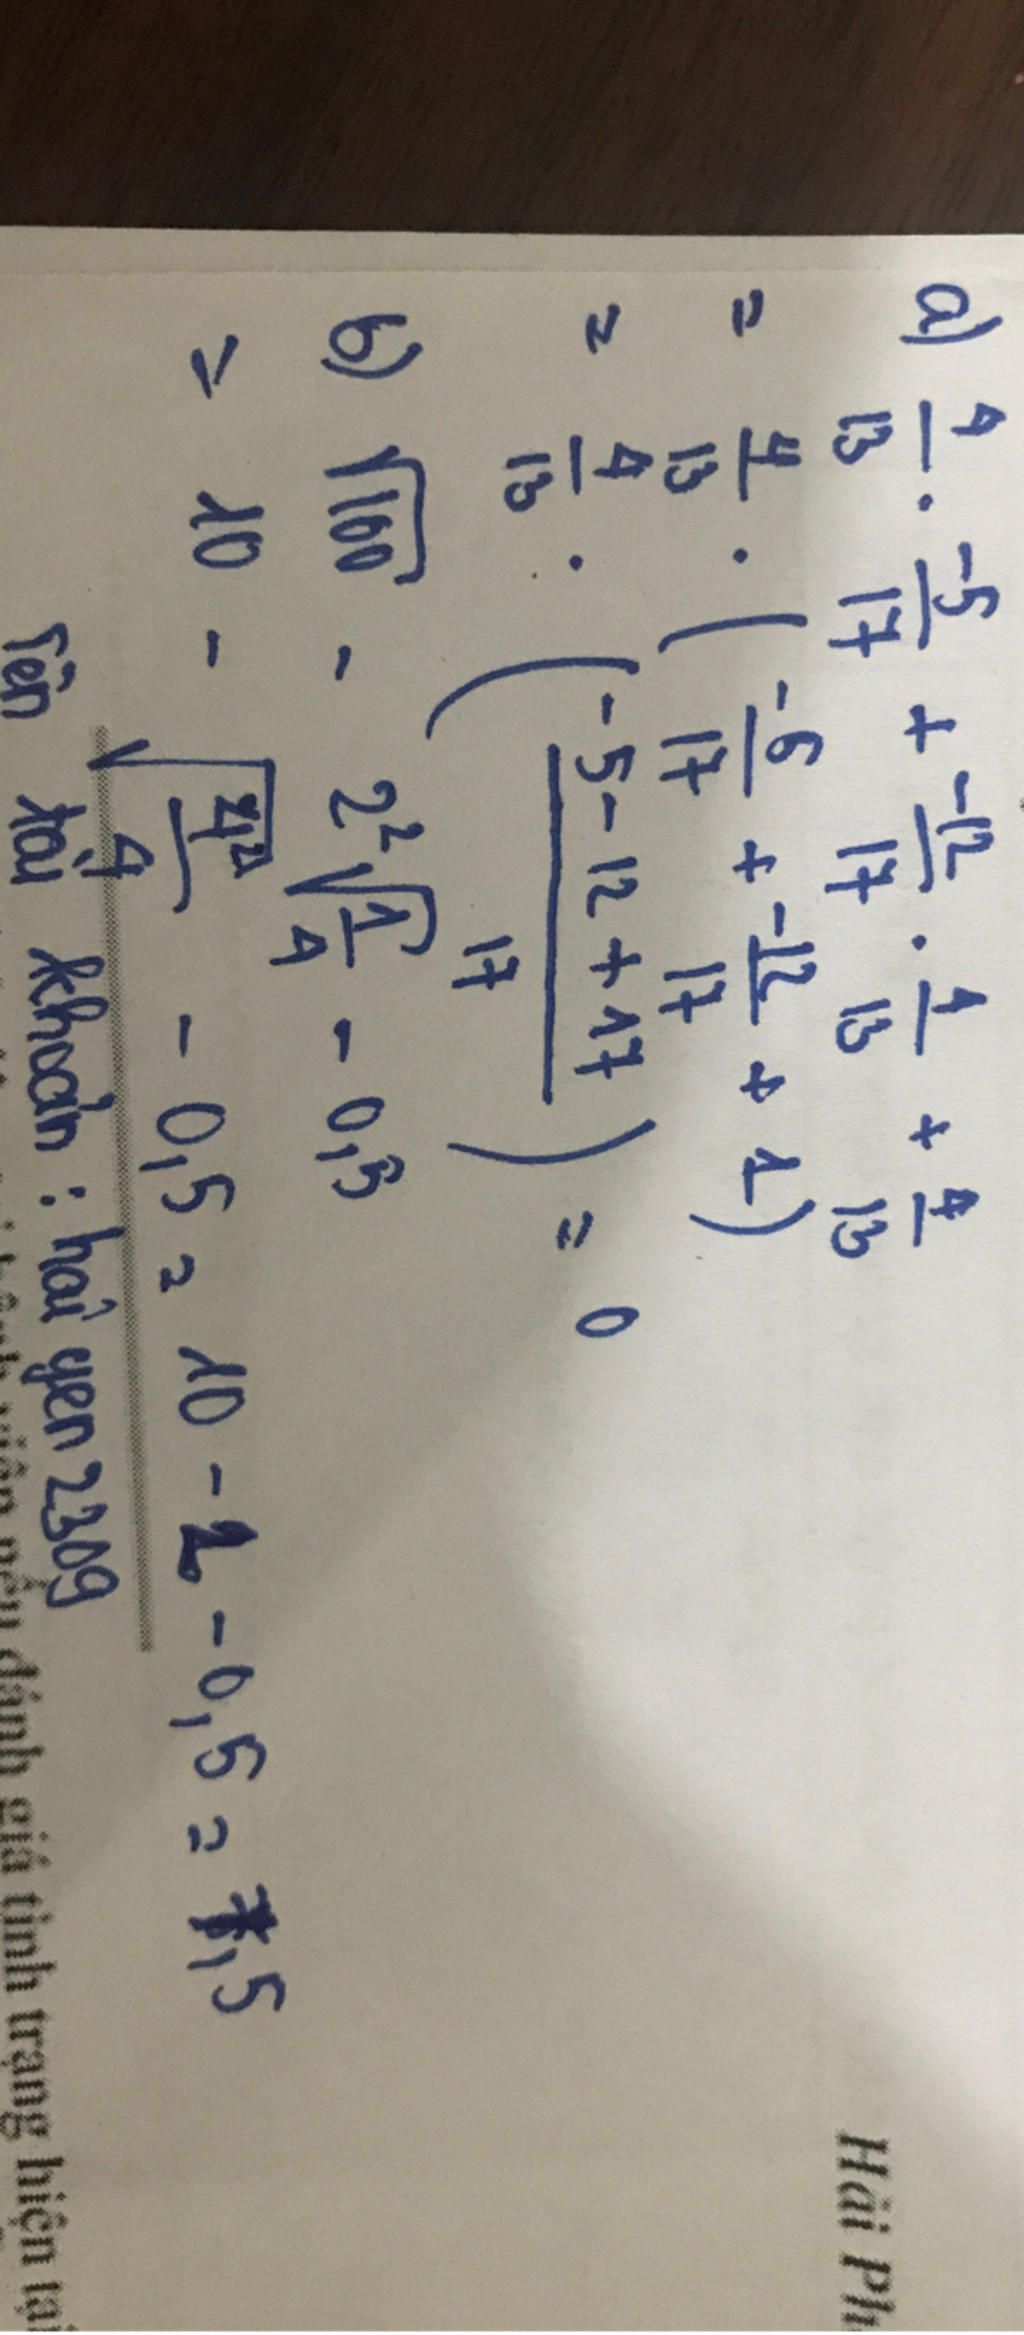 a) 4/13 . -5/17 + -12/17 . 4/13 + 4/13
= 4/13 . ( -5/17 + -12/17 + 1 )
= 4/13 . ( -5 - 12 + 17 / 17 ) = 0
b) √100 - 2² √1/4 - 0,5
= 10 - √4²/4 - 0,5 = 10 - 2 - 0,5 = 7,5
Tên tài khoản : hải yen 2309
đánh giá tình trạng hiện tại
Hải Ph